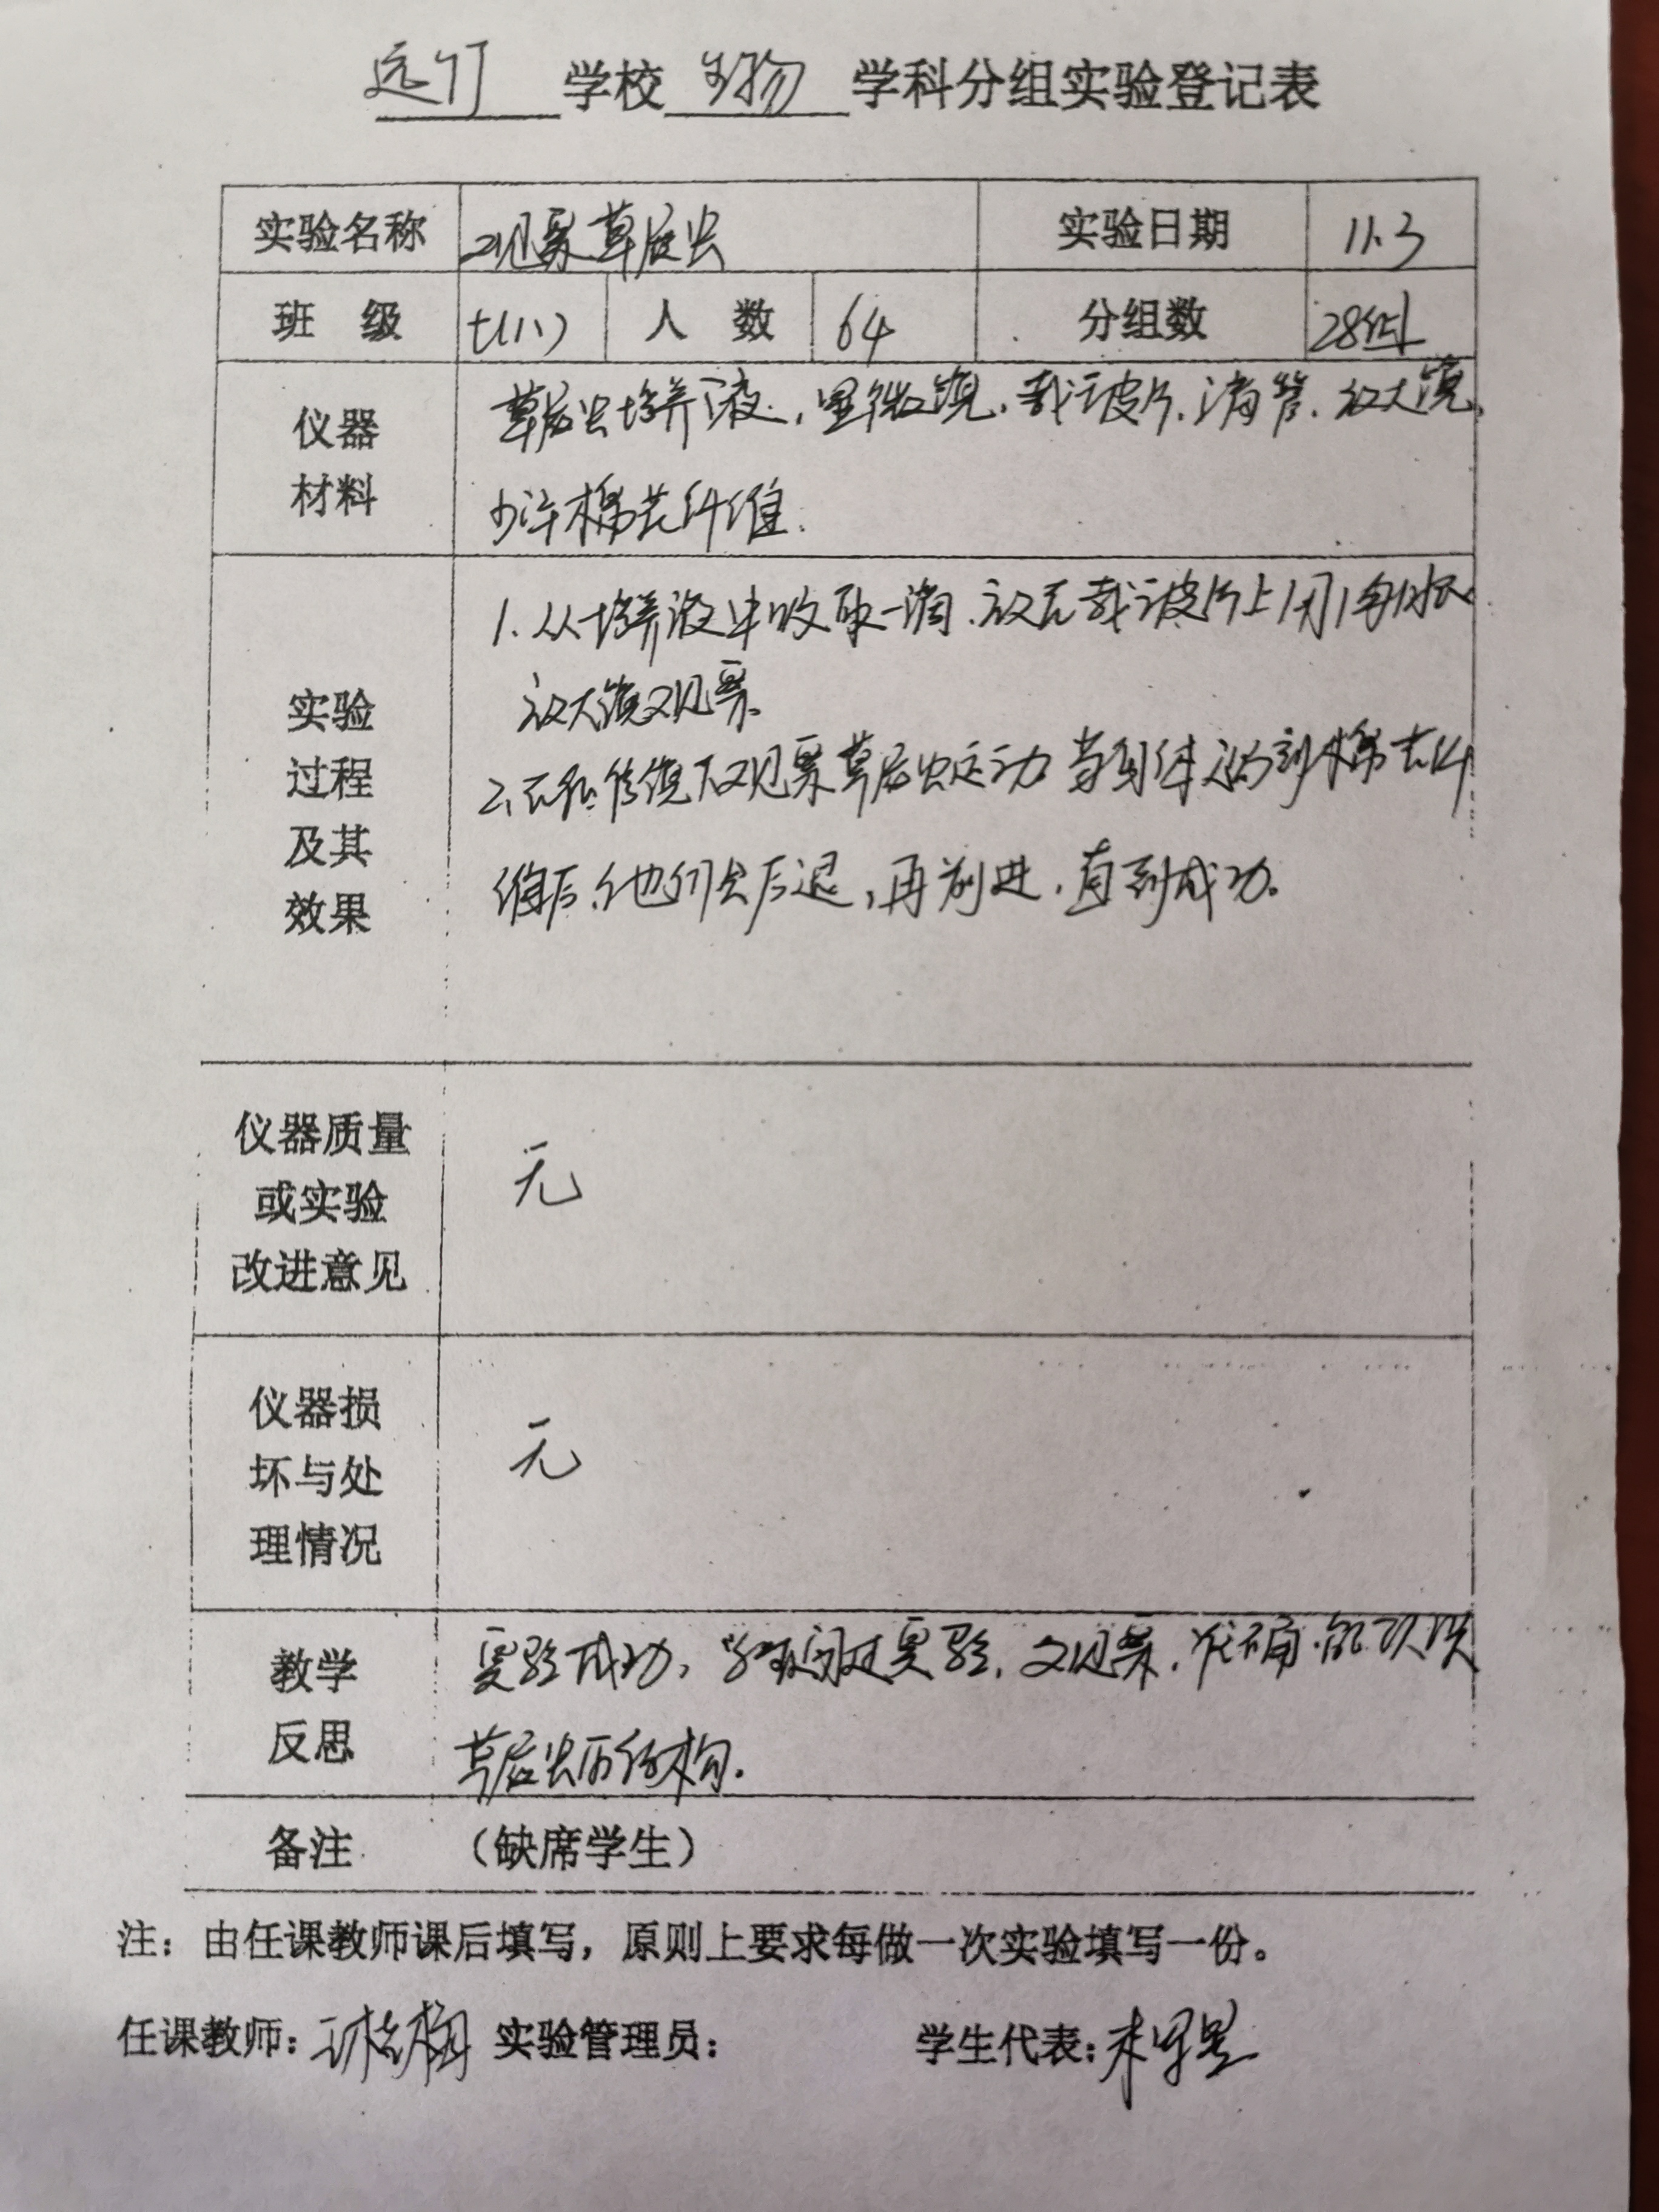 学校 生物 学科分组实验登记表
实验名称 观察草履虫 实验日期 11.3
班 级 七(1) 人 数 64 分组数 28组
仪器
材料
草履虫培养液，显微镜，载玻片，滴管，放大镜，
少许棉花纤维.
实验
过程
及其
效果
1. 从培养液中吸取一滴，放在载玻片上，用
放大镜观察.
2. 在显微镜下观察草履虫运动 当 到棉花纤
维后，他们会后退，再前进，直到成功。
仪器质量
或实验
改进意见
无
仪器损
坏与处
理情况
无
教学
反思
实验成功，学生通过实验，观察，准确
草履虫的结构.
备注 （缺席学生）
注：由任课教师课后填写，原则上要求每做一次实验填写一份。
任课教师： 实验管理员： 学生代表：